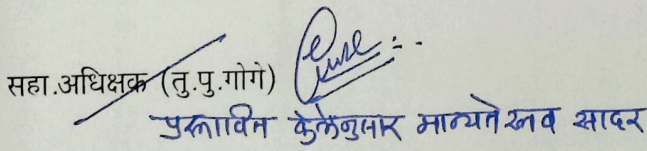 सहा.अधिक्षक (तु.पु.गोगे)
प्रस्तावित केलेनुसार मान्यतेस्तव सादर